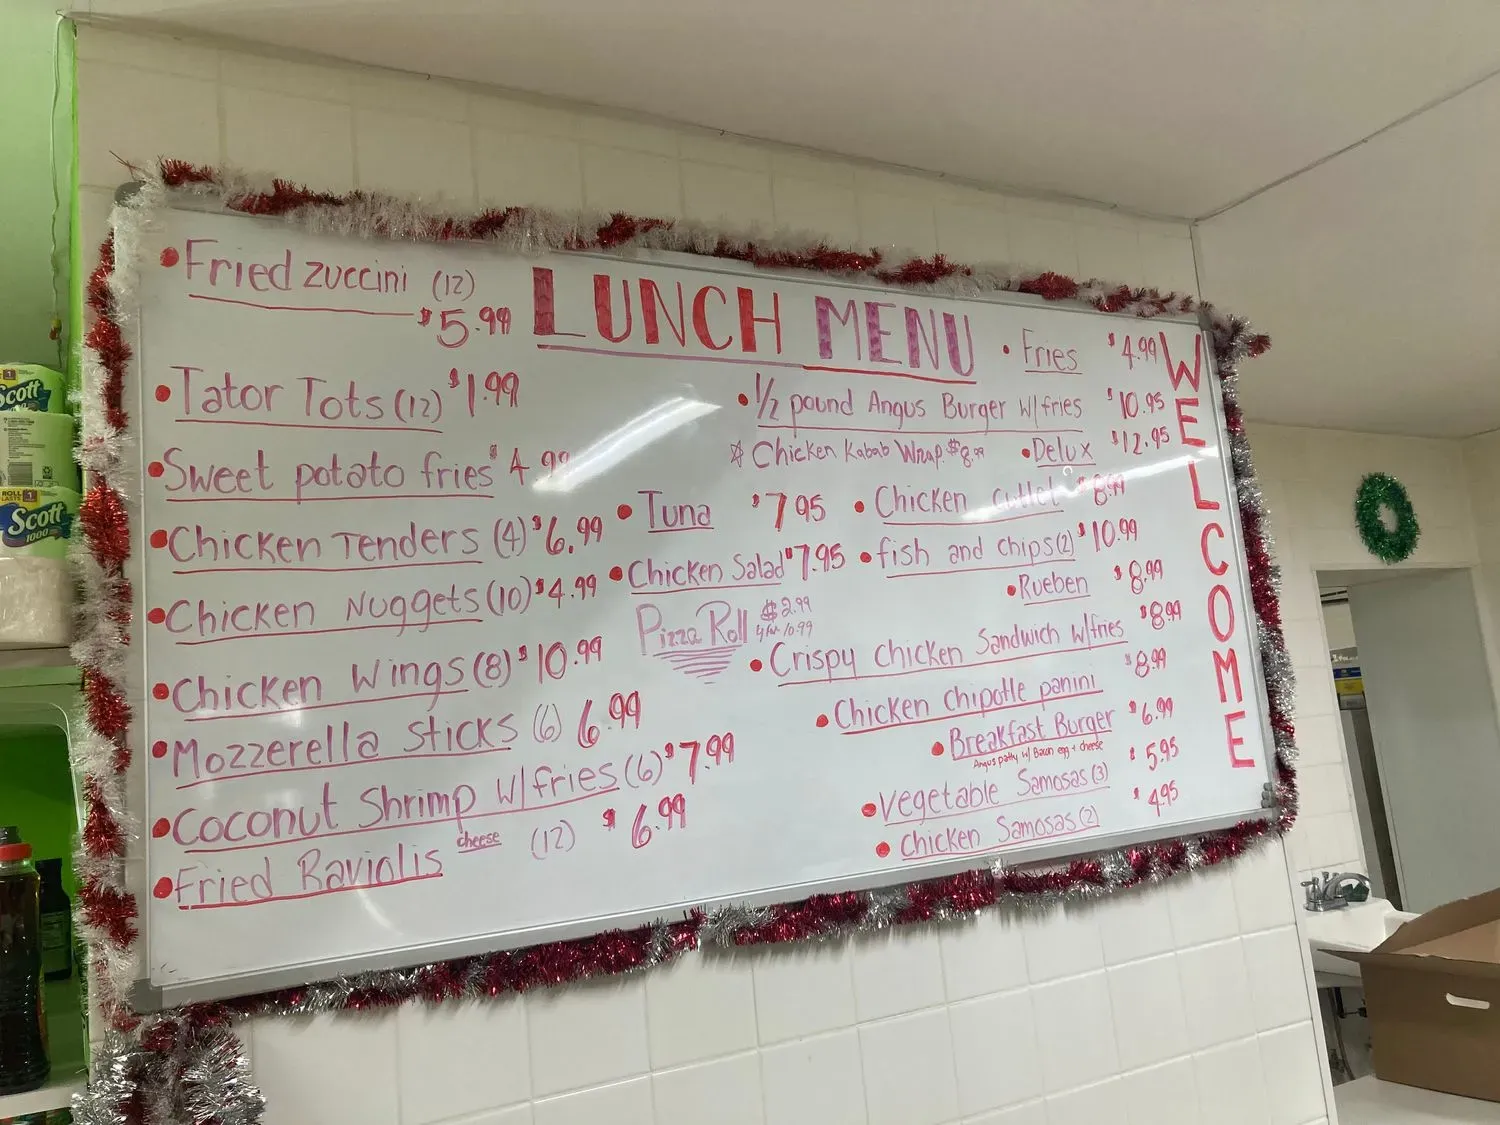 LUNCH MENU
• Fried Zuccini (12)
$5.99
• Tator Tots (12) $1.99
• Sweet potato fries $4.99
• Chicken Tenders (4) $6.99
• Chicken Nuggets (10) $4.99
• Chicken Wings (8) $10.99
• Mozzerella Sticks (6) 6.99
• Coconut Shrimp W/fries (6) $7.99
• Fried Raviolis cheese (12) $6.99
• Tuna $7.95
• Chicken Salad $7.95
Pizza Roll $2.99
10.99
• Fries $4.99
• 1/2 pound Angus Burger W/fries $10.95
☆ Chicken Kabab Wrap $8.99
• Delux $12.95
• Chicken Cutlet $8.99
• fish and chips (2) $10.99
• Rueben $8.99
• Crispy Chicken Sandwich W/fries $8.99
• Chicken Chipotle panini $8.99
• Breakfast Burger $6.99
Angus patty W/ Bacon egg + cheese
• Vegetable Samosas (3) $5.95
• Chicken Samosas (2) $4.95
WELCOME
Scott
Scott
1000